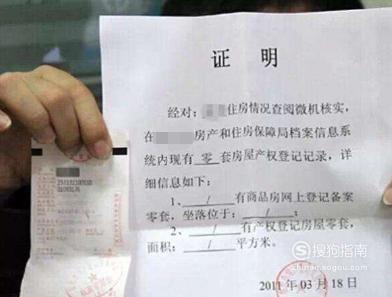 证 明
经对：住房情况查阅微机核实，
在房产和住房保障局档案信息系
统内现有 零 套房屋产权登记记录，详
细信息如下：
1、 / 有商品房网上登记备案
零套，坐落位于： / ；
2、 / 有产权登记房屋零套，
面积： / 平方米。
2011 年 03 月 18 日
搜狗指南
zhinan.sogou.com